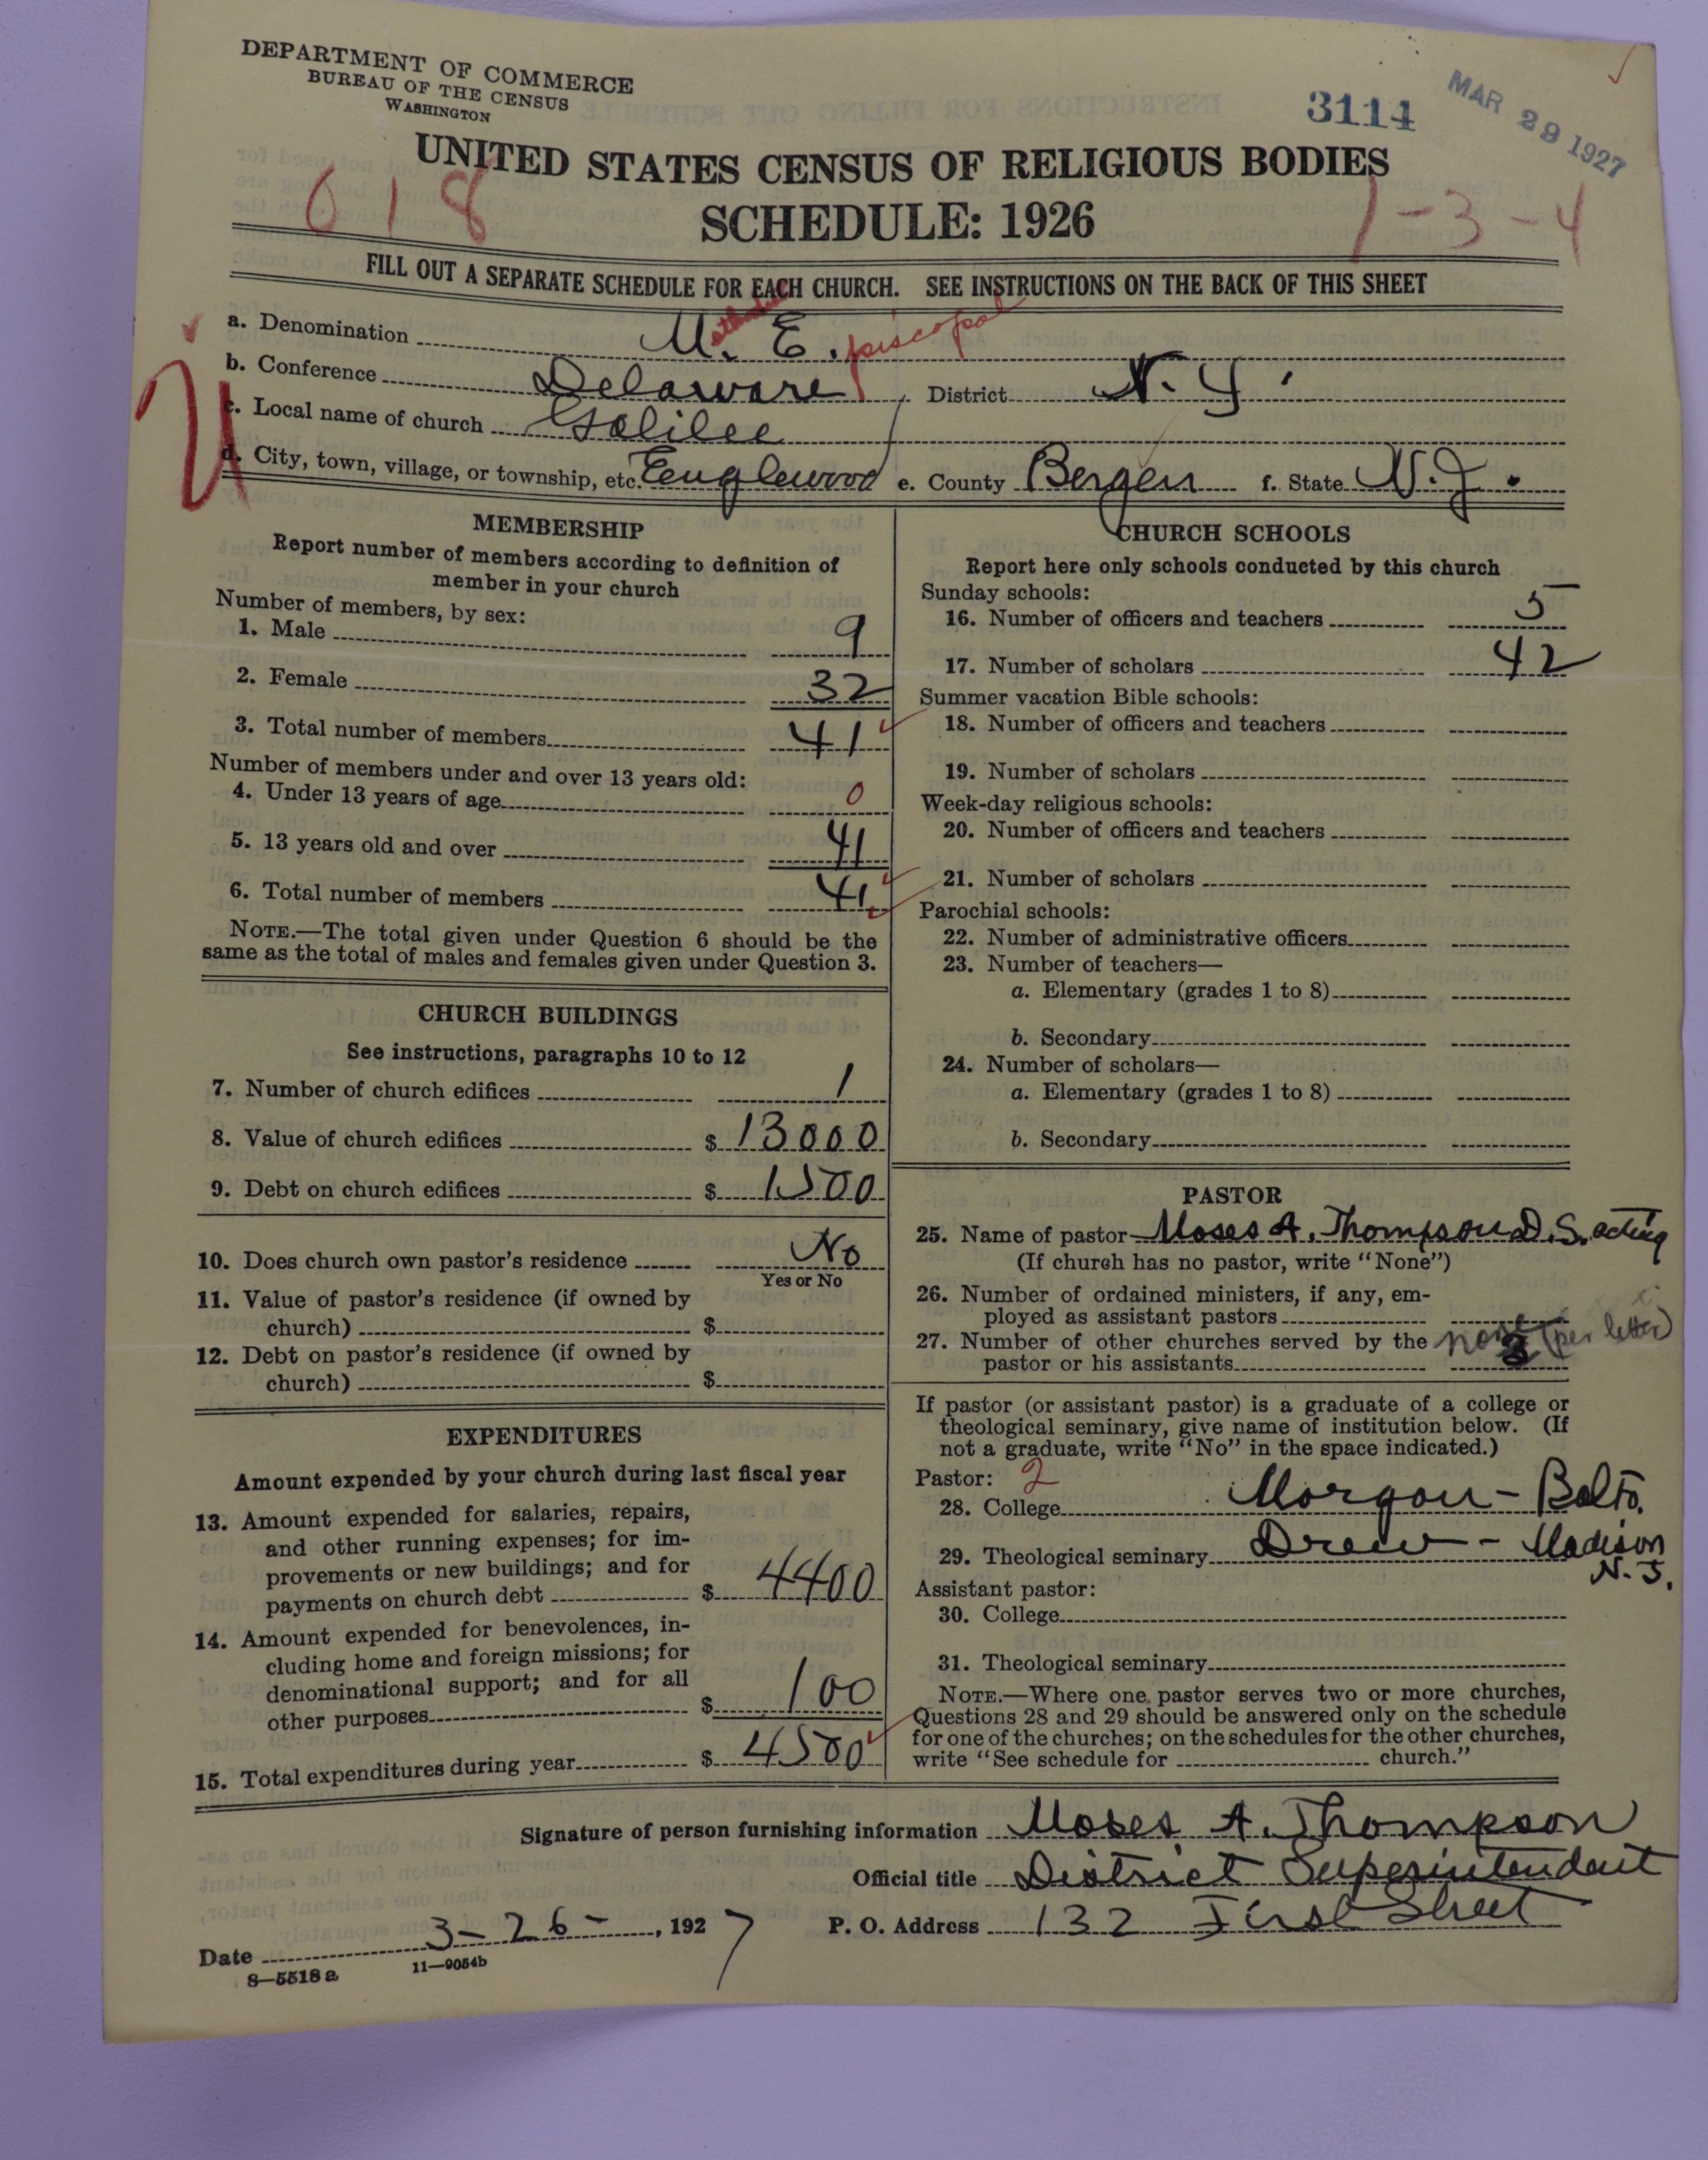 DEPARTMENT OF COMMERCE
BUREAU OF THE CENSUS
WASHINGTON
3114
MAR 29 1927
UNITED STATES CENSUS OF RELIGIOUS BODIES
618
SCHEDULE: 1926
1-3-4
FILL OUT A SEPARATE SCHEDULE FOR EACH CHURCH. SEE INSTRUCTIONS ON THE BACK OF THIS SHEET
a. Denomination M.ethodist E.piscopal
b. Conference Delaware, District N.Y.
c. Local name of church Galilee
d. City, town, village, or township, etc. Eenglewood e. County Bergen f. State N.J.
MEMBERSHIP
Report number of members according to definition of
member in your church
Number of members, by sex:
1. Male 9
2. Female 32
3. Total number of members 41
Number of members under and over 13 years old:
4. Under 13 years of age 0
5. 13 years old and over 41
6. Total number of members 41
NOTE.—The total given under Question 6 should be the
same as the total of males and females given under Question 3.
CHURCH BUILDINGS
See instructions, paragraphs 10 to 12
7. Number of church edifices 1
8. Value of church edifices $ 13000
9. Debt on church edifices $ 1500
10. Does church own pastor's residence No
Yes or No
11. Value of pastor's residence (if owned by
church) $
12. Debt on pastor's residence (if owned by
church) $
EXPENDITURES
Amount expended by your church during last fiscal year
13. Amount expended for salaries, repairs,
and other running expenses; for im-
provements or new buildings; and for
payments on church debt $ 4400
14. Amount expended for benevolences, in-
cluding home and foreign missions; for
denominational support; and for all
other purposes $ 100
15. Total expenditures during year $ 4500
CHURCH SCHOOLS
Report here only schools conducted by this church
Sunday schools:
16. Number of officers and teachers 5
17. Number of scholars 42
Summer vacation Bible schools:
18. Number of officers and teachers
19. Number of scholars
Week-day religious schools:
20. Number of officers and teachers
21. Number of scholars
Parochial schools:
22. Number of administrative officers
23. Number of teachers—
a. Elementary (grades 1 to 8)
b. Secondary
24. Number of scholars—
a. Elementary (grades 1 to 8)
b. Secondary
PASTOR
25. Name of pastor Moses A. Thompson D.S. acting
(If church has no pastor, write "None")
26. Number of ordained ministers, if any, em-
ployed as assistant pastors
27. Number of other churches served by the none (per letter)
pastor or his assistants
If pastor (or assistant pastor) is a graduate of a college or
theological seminary, give name of institution below. (If
not a graduate, write "No" in the space indicated.)
Pastor: 2
28. College Morgan - Balto.
29. Theological seminary Drew - Madison
N.J.
Assistant pastor:
30. College
31. Theological seminary
NOTE.—Where one pastor serves two or more churches,
Questions 28 and 29 should be answered only on the schedule
for one of the churches; on the schedules for the other churches,
write "See schedule for church."
Signature of person furnishing information Moses A. Thompson
Official title District Superintendant
Date 3-26-, 1927 P. O. Address 132 First Street
8—5518 a 11—9054b